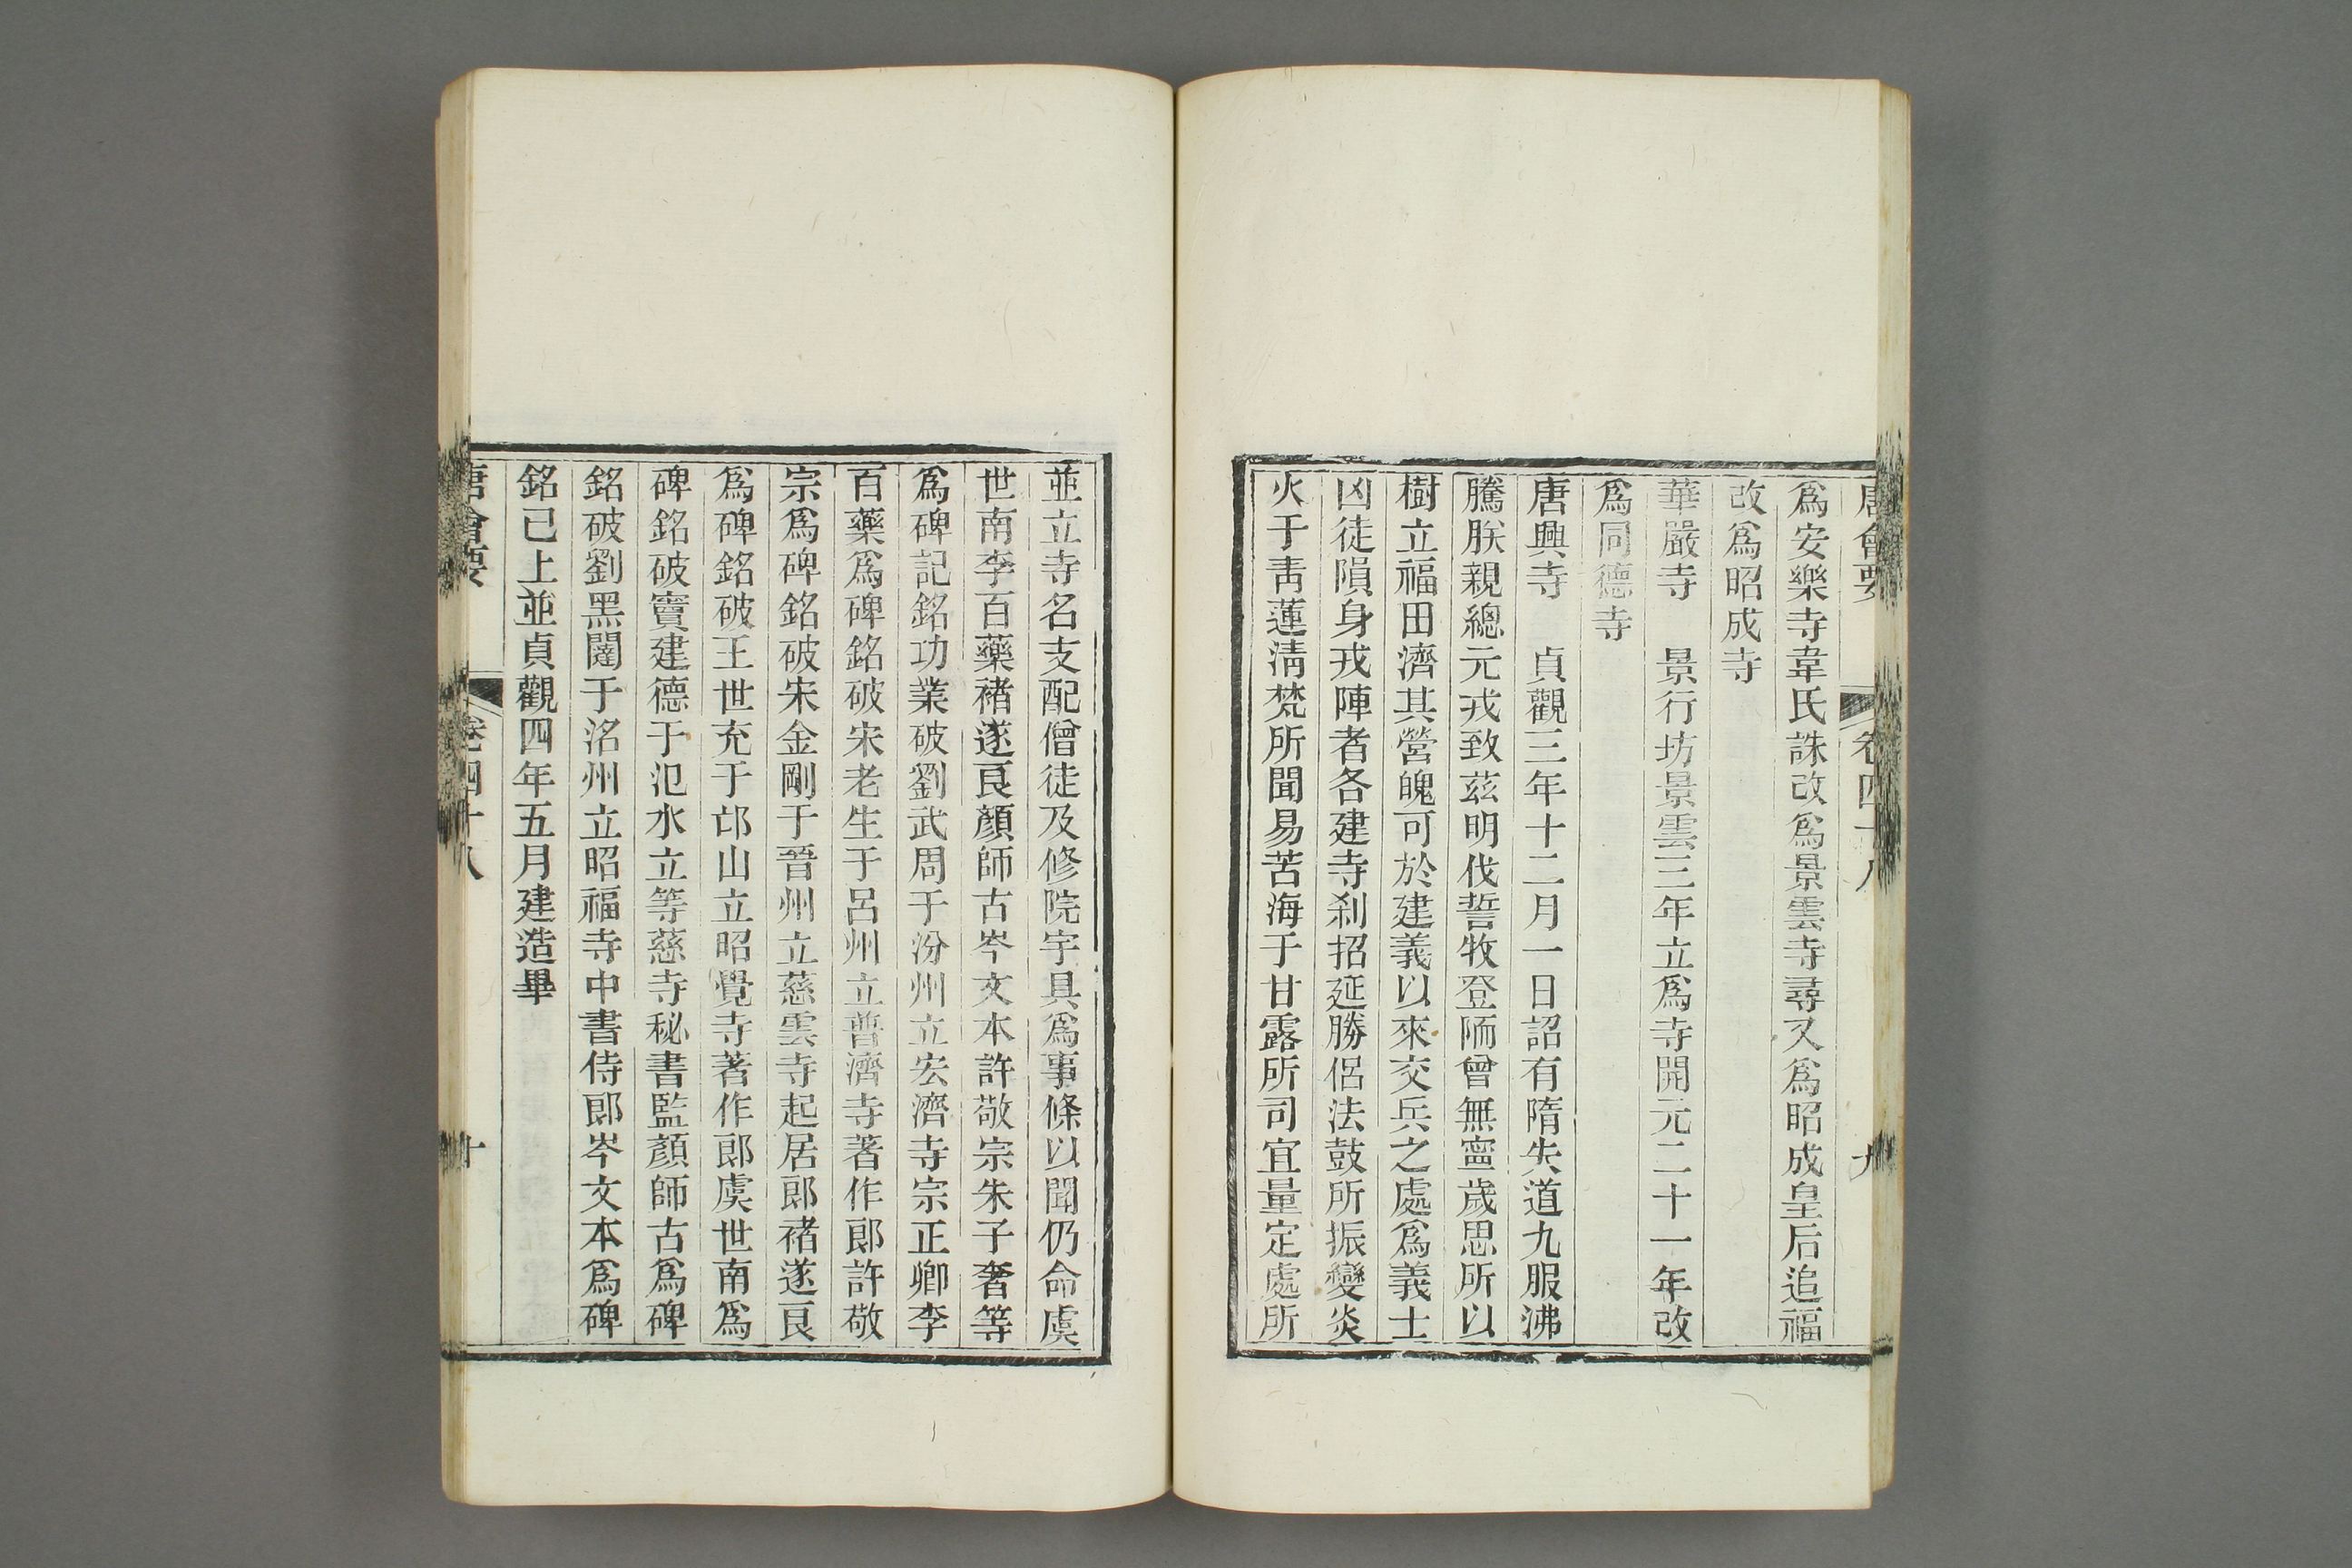 唐會要 卷四十八 九
爲安樂寺韋氏誅改爲景雲寺尋又爲昭成皇后追福
改爲昭成寺
華嚴寺 景行坊景雲三年立爲寺開元二十一年改
爲同德寺
唐興寺 貞觀三年十二月一日詔有隋失道九服沸
騰朕親總元戎致茲明伐誓牧登陑曾無寧歲思所以
樹立福田濟其營魄可於建義以來交兵之處爲義士
凶徒隕身戎陣者各建寺剎招延勝侶法鼓所振變炎
火于靑蓮淸梵所聞易苦海于甘露所司宜量定處所
並立寺名支配僧徒及修院宇具爲事條以聞仍命虞
世南李百藥褚遂良顏師古岑文本許敬宗朱子奢等
爲碑記銘功業破劉武周于汾州立宏濟寺宗正卿李
百藥爲碑銘破宋老生于呂州立普濟寺著作郎許敬
宗爲碑銘破宋金剛于晉州立慈雲寺起居郎褚遂良
爲碑銘破王世充于邙山立昭覺寺著作郎虞世南爲
碑銘破竇建德于氾水立等慈寺秘書監顏師古爲碑
銘破劉黑闥于洺州立昭福寺中書侍郎岑文本爲碑
銘已上並貞觀四年五月建造畢
唐會要 卷四十八 十